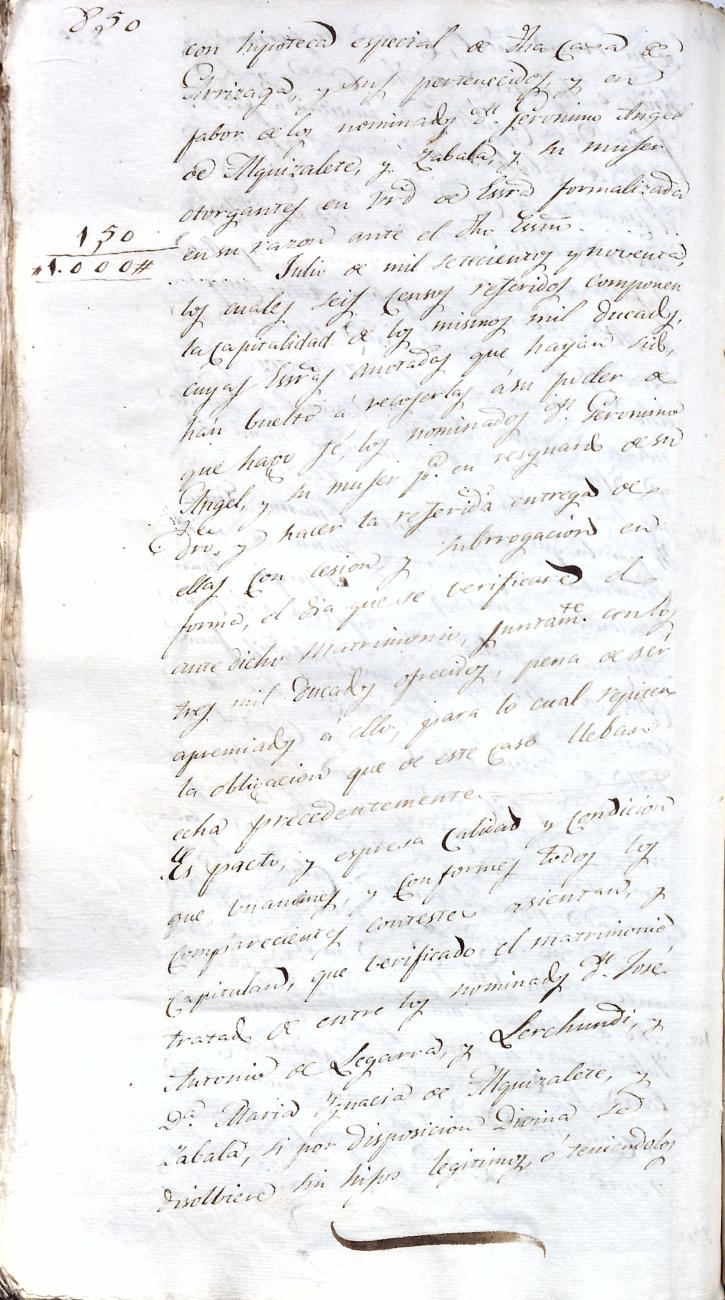 850
con hipoteca especial de dha Casa de
Arrizaga, y sus pertenecidos, y en
fabor de los nominados Dn. Geronimo Angel
de Alquizalete, y Zabala, y su muger
otorgantes en vrd de Essra formalizada
150
en su razon ante el dho Essno.
1.000#
Julio de mil setecientos y noventa,
los cuales seis Censos referidos componen
la Capitalidad de los mismos mil ducados,
cuyas Essras anotadas que hayan sido,
han buelto á recojerlas á su poder de
que hago fé, los nominados Dn. Geronimo
Angel, y su muger pa. en resguardo de su
dro, y hacer la referida entrega de
ellas con cesion, y subrrogacion en
forma, el dia que se verificare el
ante dicho Matrimonio, juntamte. con los
tres mil Ducados ofrecidos, pena de ser
apremiados á ello, para lo cual repiten
la obligacion que de este Caso lleban
echa precedentemente.
Es pacto, y espresa Calidad y Condicion
que unanimes, y Conformes todos los
Comparecientes contestes asientan, y
Capitulan, que verificado el matrimonio
tratado de entre los nominados Dn. José
Antonio de Legarra, y Lerchundi, y
Da. Maria Ygnacia de Alquizalete, y
Zabala, si por disposicion Divina se
disolbiere sin hijos legitimos, ó teniendolos